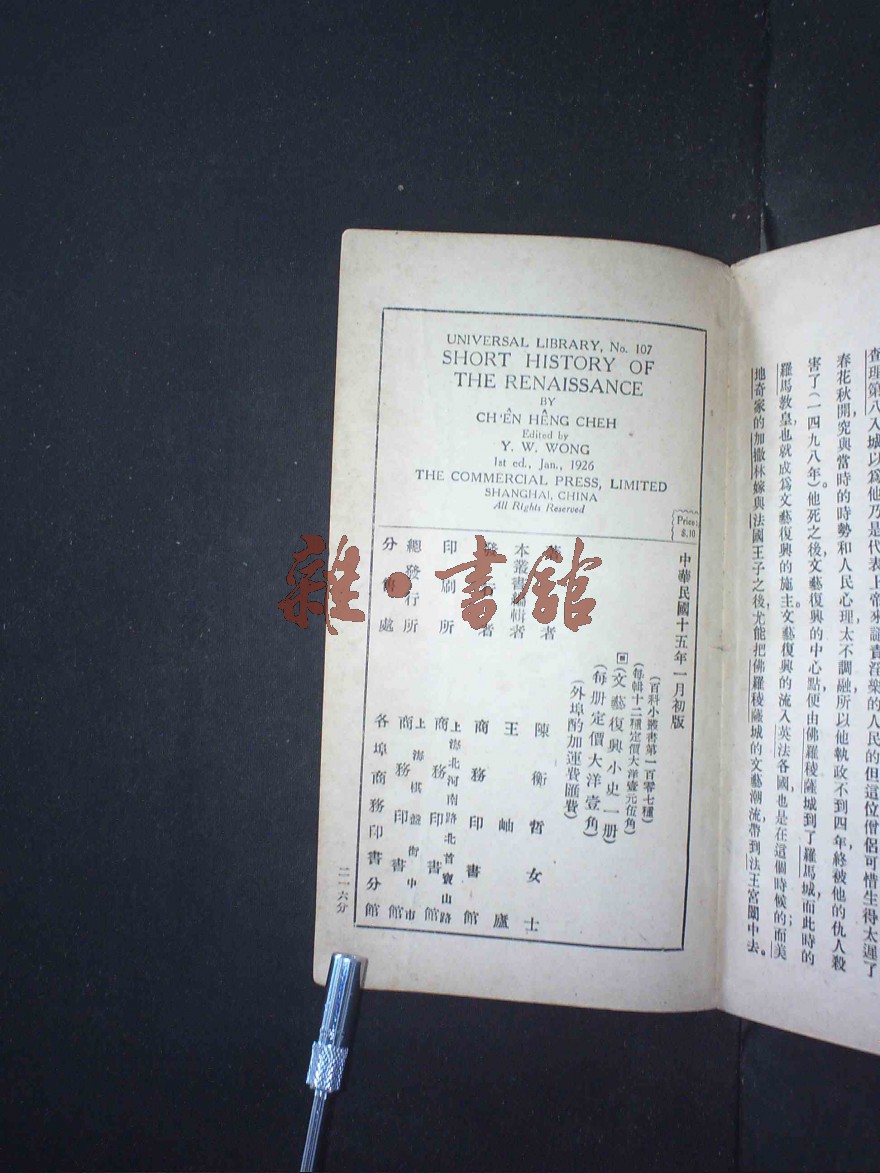 UNIVERSAL LIBRARY, No. 107
SHORT HISTORY OF
THE RENAISSANCE
BY
CH'ÊN HÊNG CHEH
Edited by
Y. W. WONG
1st ed., Jan., 1926
THE COMMERCIAL PRESS, LIMITED
SHANGHAI, CHINA
All Rights Reserved
Price:
$.10
中華民國十五年一月初版
(百科小叢書第一百零七種)
(每輯十二種定價大洋壹元伍角)
(文藝復興小史一册)
(每册定價大洋壹角)
(外埠酌加運費匯費)
者 陳衡哲女士
本叢書編輯者 王岫廬
者 商務印書館
印刷所 上海北河南路北首寶山路 商務印書館
總發行所 上海棋盤街中市 商務印書館
分 處 各埠商務印書分館
二一六分
雜·書館
查理第八入城以為他乃是代表上帝來譴責淫樂的人民的但這位僧侶可惜生得太遲了
春花秋開,究與當時的時勢和人民心理太不調融,所以他執政不到四年,終被他的仇人殺
害了(一四九八年)。他死之後,文藝復興的中心點,便由佛羅稜薩城到了羅馬城,而此時的
羅馬敎皇,也就成爲文藝復興的施主。文藝復興的流入英法各國,也是在這個時候的;而美
地奇家的加撒林嫁與法國王子之後,尤能把佛羅稜薩城的文藝潮流,帶到法王宮闈中去。